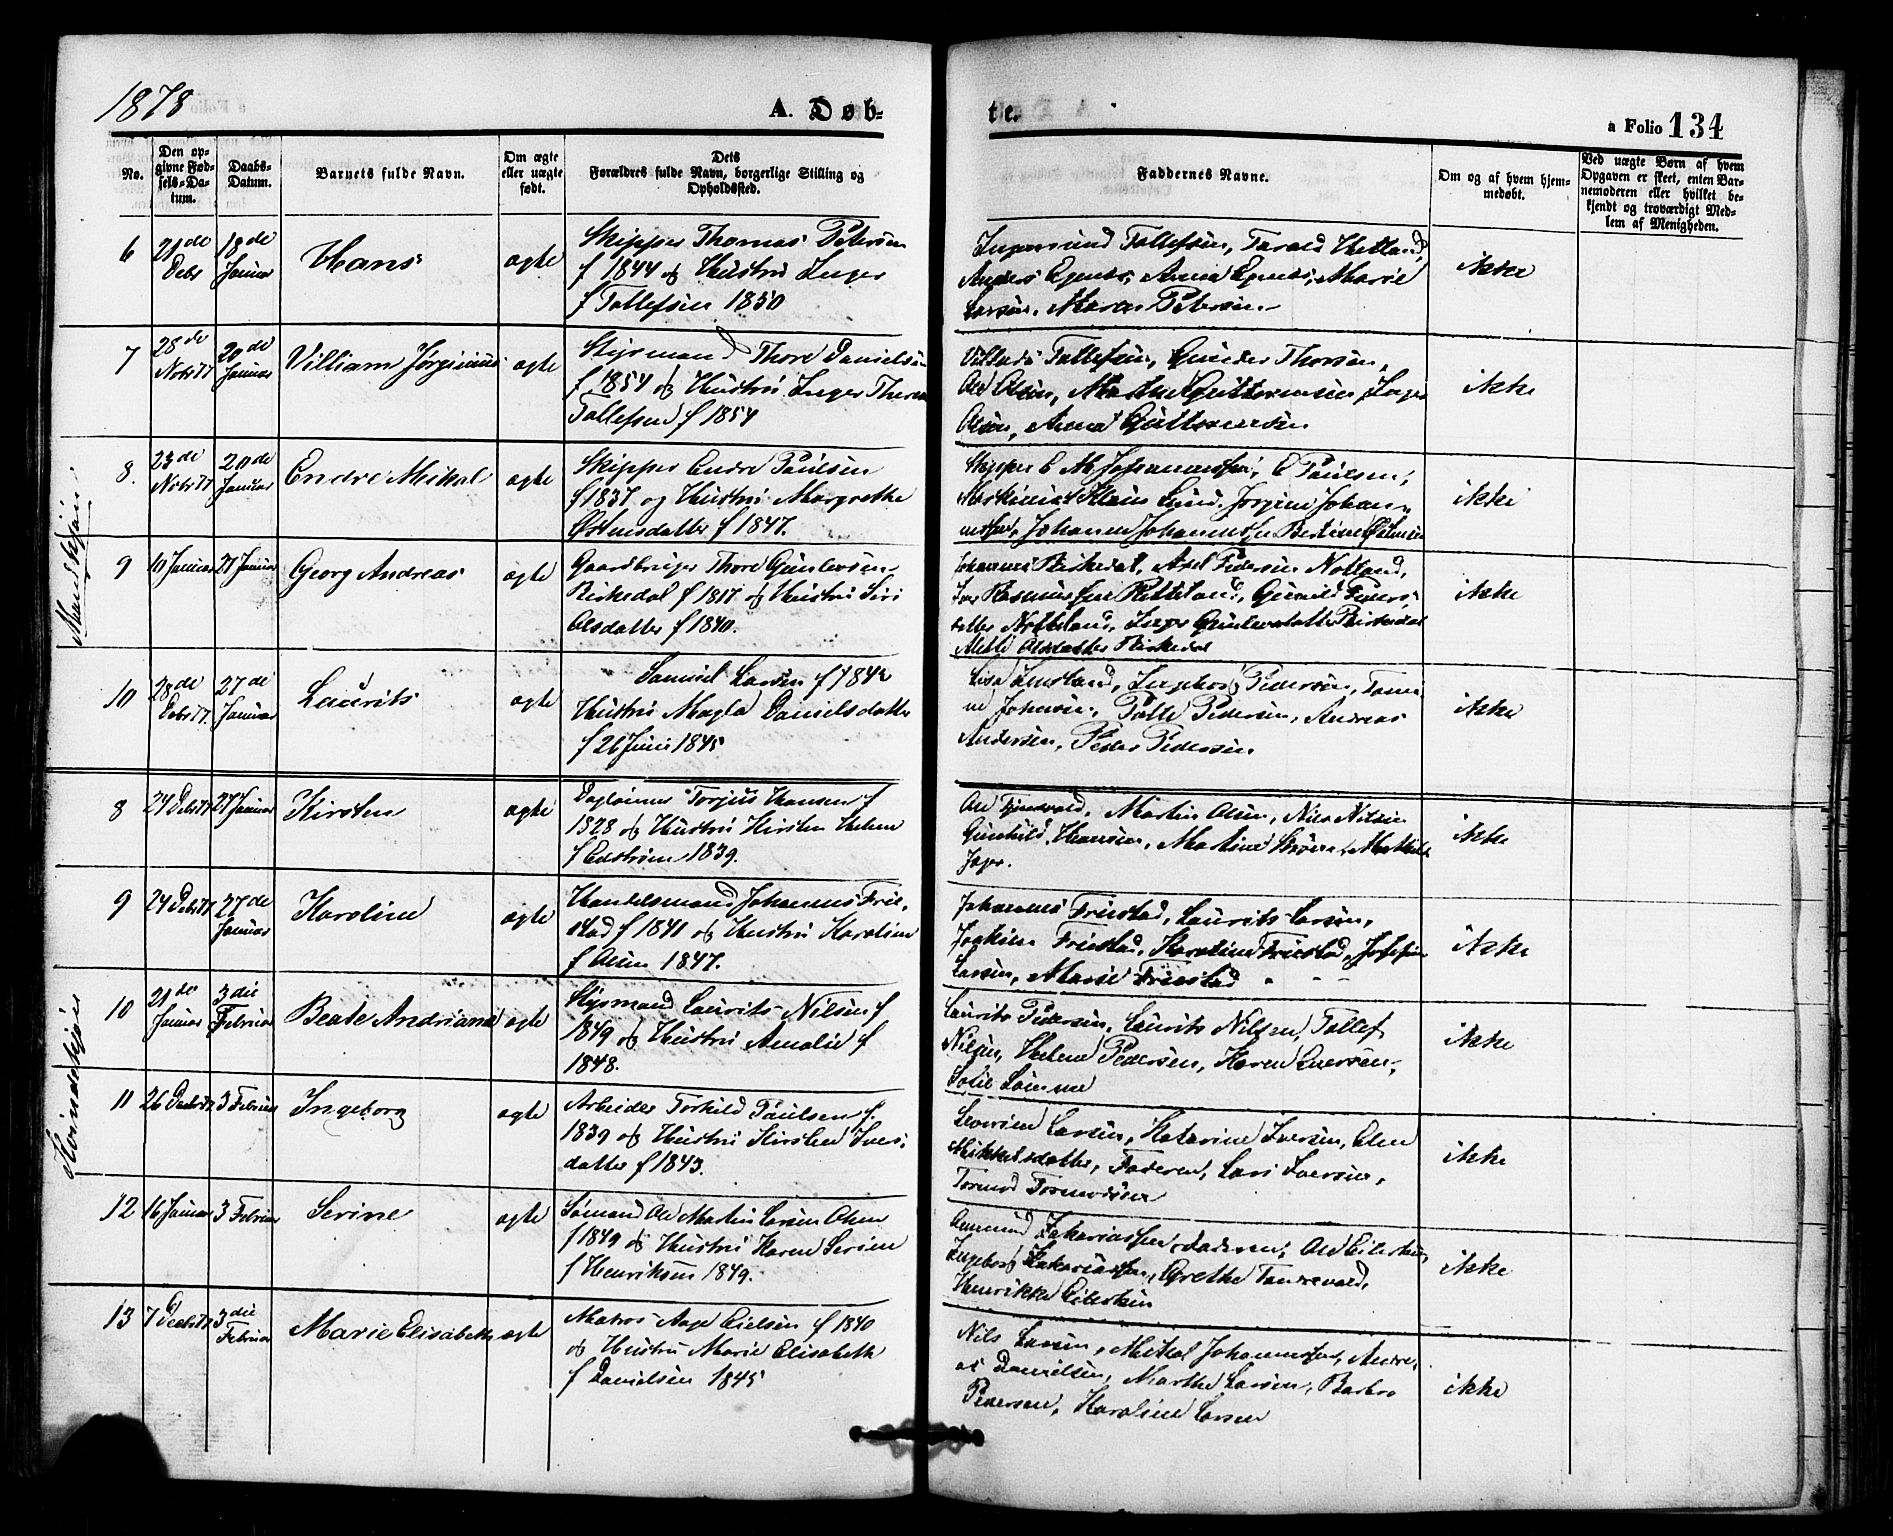 1878
A. Døb-
te.
a Folio 134
No.
Den op-
givne Fød-
sels-Da-
tum.
Daabs-
Datum.
Barnets fulde Navn.
Om ægte
eller uægte
født.
Dets
Forældres fulde Navn, borgerlige Stilling og
Opholdssted.
Faddernes Navne.
Om og af hvem hjem-
medøbt.
Ved uægte Børn af hvem
Opgaven er skeet, enten Bar-
nemoderen eller hvilket be-
kjendt og troværdigt Med-
lem af Menigheden.
Mandkjøn
6
21de
Debr
18de
Januar
Hans
ægte
Skipper Thomas Petersen
f 1844 og Hustru Inger
f Tollefsen 1850
Tollefsen, Tarald Hetland,
Anders Egenes, Anna Egenes, Marie
Larsen, Maren Petersen
ikke
7
28de
Nobr 77
20de
Januar
Villiam Jørginius
ægte
Styrmand Thore Danielsen
f 1854 og Hustru Inger
Tollefsen f 1854
Tollefsen, Gunder Thorsen,
Ole Olsen, Marthe Guttormsen, Inger
Olsen, Anna Guttormsen
ikke
8.
23de
Nobr 77
20de
Januar
Endre Mikal
ægte
Skipper Endre Paulsen
f 1837 og Hustru Margrethe
f 1847.
Skipper E M Johannessen, E Paulsen,
Maskinist Klaus Lund, Jørgine Johan-
nessen, Johanne Johannessen
ikke
9
10 Januar
27 Januar
Georg Andreas
ægte
Gaardbruger Thore Gunlersen
Birkedal f 1817 og Hustru Siri
Olsdatter f 1840.
Johannes Birkedal, Axel Pedersen Notland,
Rasmussen Gunild
datter Inger Birkedal
Olsdatter Birkedal
ikke
10
28de
Debr 77.
27de
Januar
Laurits
ægte
Samuel Larsen f 1842
Hustru Magla Danielsdatter
f 26 Juni 1845
Ingeborg Pedersen,
Johnsen, Pedersen, Andreas
Andersen, Peder Pedersen
ikke
Kvindekjøn
8
24 Debr 77
27 Januar
Kirsten
ægte
Dagleiner Torjus Hansen f
1828 og Hustru Kirsten Helene
f Enstrøm 1839.
Ole Martin Olsen, Nils Nilsen
Gunhild Hansen, Martine
ikke
9
24 Debr 77
27de
Januar
Karoline
ægte
Handelsmand Johannes Frie-
stad f 1841 og Hustru Karoline
f Olsen 1847.
Johannes Friestad, Laurits Larsen,
Joakim Friestad, Karoline Friestad, Josefine
Larsen, Marie Friestad
ikke
10
21de
Januar
3die
Februar
Beate Andriana
ægte
Styrmand Laurits Nilsen f
1849 og Hustru Amalie f
1848.
Laurits Pedersen, Laurits Nilsen, Tollef
Nilsen, Helene Pedersen, Karen Iversen,
Sofie
ikke
11
26 Debr 77
3 Februar
Ingeborg
ægte
Arbeider Torkild Paulsen f.
1839 og Hustru Kirsten Ivers-
datter f 1843.
Severine Larsen, Katarine Iversen,
Mikkelsdatter, Faderen, Lars Iversen,
Tormod Tormodsen
ikke
12
16 Januar
3 Februar
Serine
ægte
Sømand Ole Martin Larsen
f 1849 og Hustru Karen Serine
f Henriksen 1849.
Zakariassen, Faderen, Ole Eilertsen,
Ingeborg Zakariassen, Grethe Tangevald,
Henrikke Eilertsen
ikke
13
7 Debr 77
3die
Februar
Marie Elisabeth
ægte
Matros Aage Eielsen f 1840
og Hustru Marie Elisabeth
f Danielsen 1845
Nils Larsen, Mikal Johannessen, Andre-
as Danielsen, Marthe Larsen, Barbro
Pedersen, Karoline Larsen
ikke